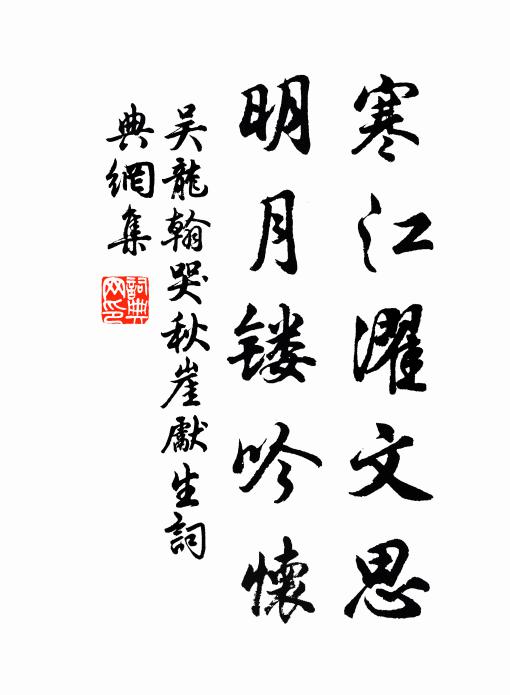 寒江濯文思
明月镂吟懷
吴龍翰哭秋崖獻生詞
典網集
詞典
网印